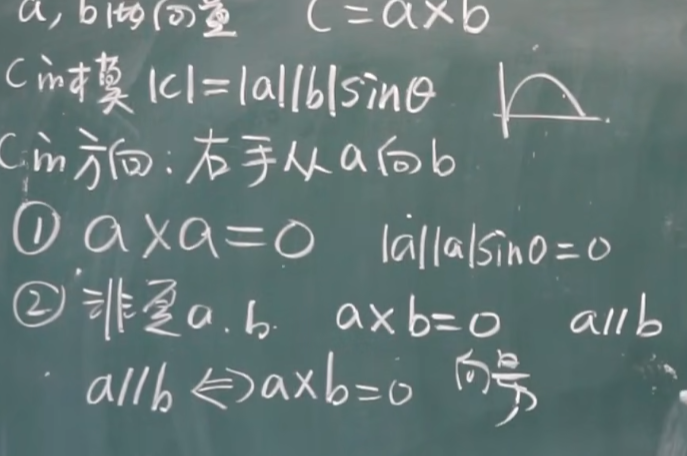 a, b的向量 C=a×b
C的模 |c|=|a||b|sinθ
C的方向:右手从a向b
① a×a=0 |a||a|sin0=0
② 非零a.b. a×b=0 a//b
a//b⇔a×b=0